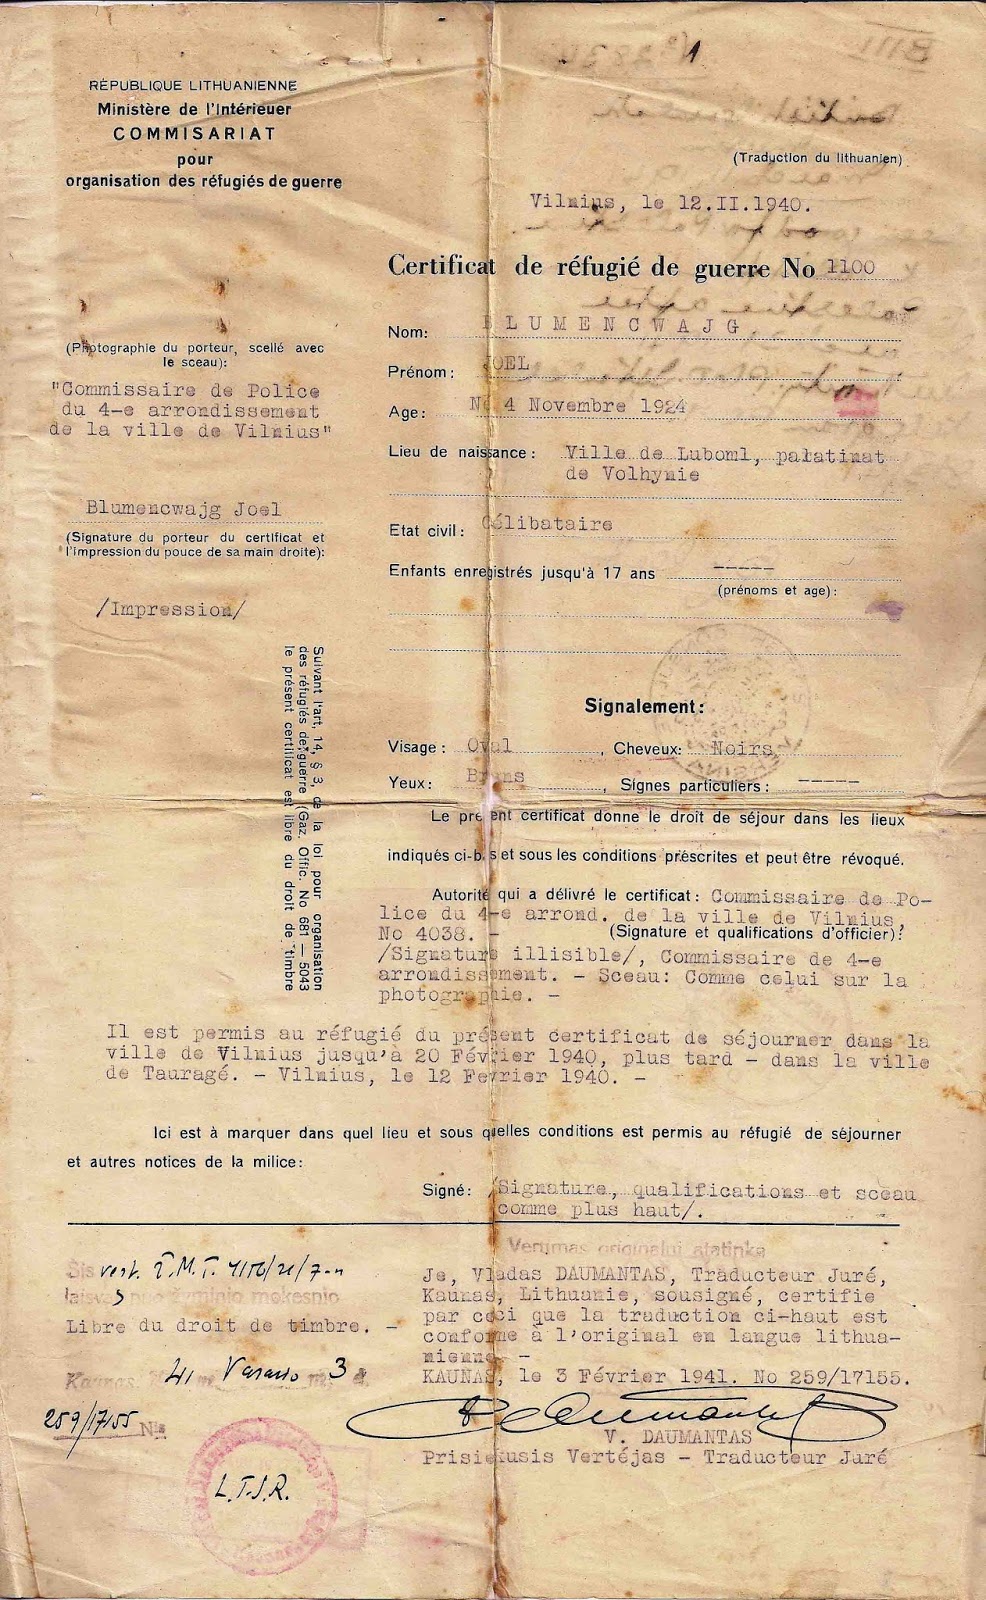 RÉPUBLIQUE LITHUANIENNE
Ministère de l'Intérieuer
COMMISARIAT
pour
organisation des réfugiés de guerre
(Traduction du lithuanien)
Vilnius, le 12.II.1940.
Certificat de réfugié de guerre No 1100
(Photographie du porteur, scellé avec
le sceau):
"Commissaire de Police
du 4-e arrondissement
de la ville de Vilnius"
Blumencwajg Joel
(Signature du porteur du certificat et
l'impression du pouce de sa main droite):
/Impression/
Suivant l'art, 14, § 3, de la loi pour organisation
des réfugiés de guerre (Gaz. Offic. No 681 — 5043
le présent certificat est libre du droit de timbre
Nom: BLUMENCWAJG
Prénom: JOEL
Age: Né 4 Novembre 1924
Lieu de naissance: Ville de Luboml, palatinat
de Volhynie
Etat civil: Célibataire
Enfants enregistrés jusqu'à 17 ans -----
(prénoms et age):
Signalement:
Visage: Oval, Cheveux: Noirs
Yeux: Bruns, Signes particuliers: -----
Le présent certificat donne le droit de séjour dans les lieux
indiqués ci-bas et sous les conditions prescrites et peut être révoqué.
Autorité qui a délivré le certificat: Commissaire de Po-
lice du 4-e arrond. de la ville de Vilnius
No 4038. - (Signature et qualifications d'officier):
/Signature illisible/, Commissaire de 4-e
arrondissement. - Sceau: Comme celui sur la
photographie. -
Il est permis au réfugié du présent certificat de séjourner dans la
ville de Vilnius jusqu'à 20 Février 1940, plus tard - dans la ville
de Tauragé. - Vilnius, le 12 Fevrier 1940. -
Ici est à marquer dans quel lieu et sous quelles conditions est permis au réfugié de séjourner
et autres notices de la milice:
Signé: /Signature, qualifications et sceau
comme plus haut/.
Vertimas originalui atatinka
Je, Vladas DAUMANTAS, Traducteur Juré,
Kaunas, Lithuanie, sousigné, certifie
par ceci que la traduction ci-haut est
conforme à l'original en langue lithua-
nienne. -
KAUNAS, le 3 Février 1941. No 259/17155.
V. DAUMANTAS
Prisiekusis Vertėjas - Traducteur Juré
Šis vert.
laisvas nuo žyminio mokesnio
Libre du droit de timbre. -
Kaunas, 41 Vasario 3 d.
259/17155 Nr.
L.T.S.R.